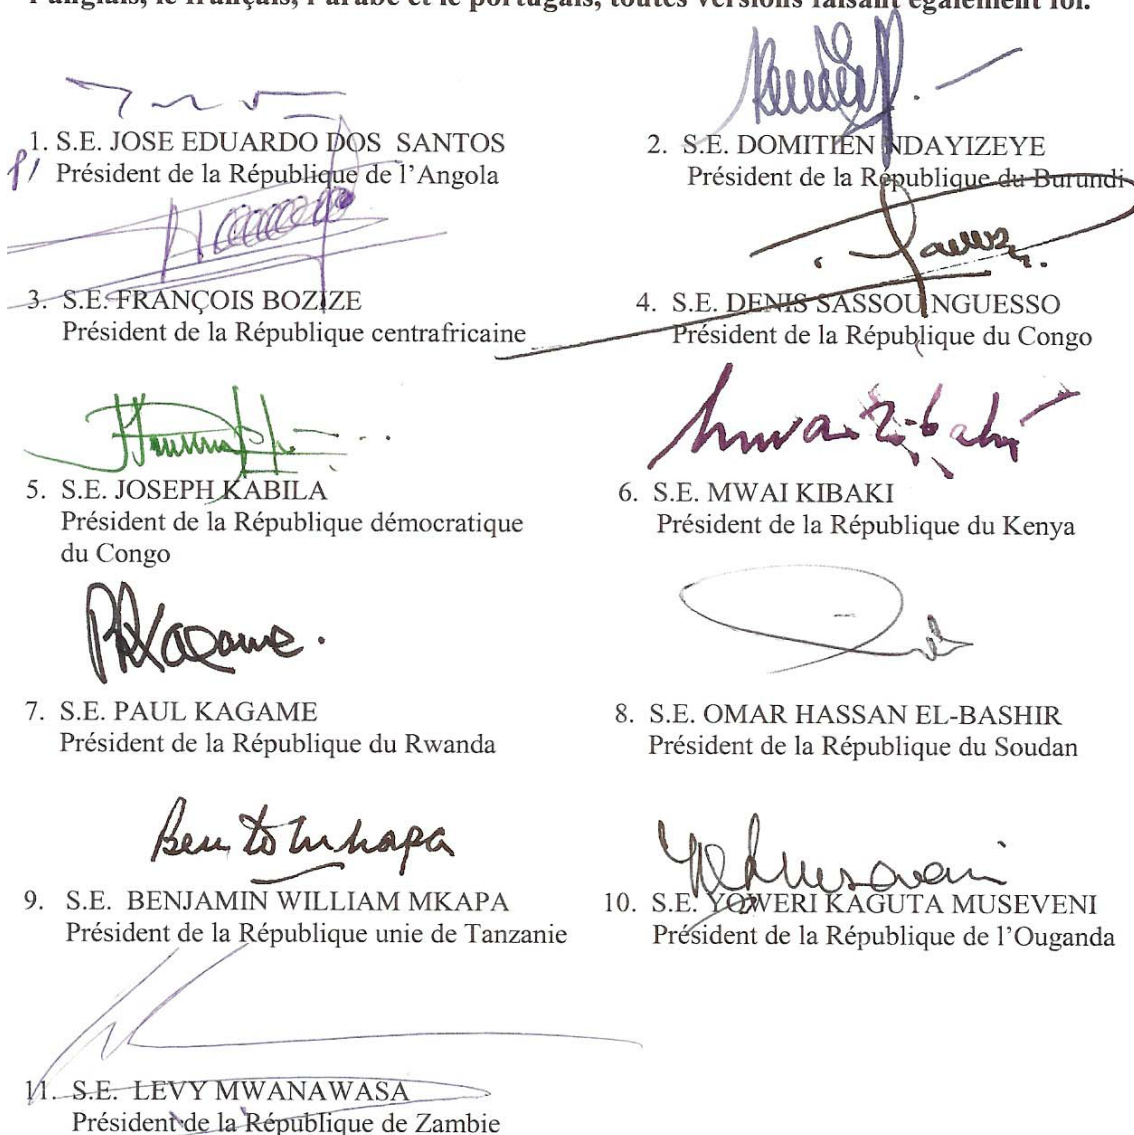 l'anglais, le français, l'arabe et le portugais, toutes versions faisant également foi.
1. S.E. JOSE EDUARDO DOS SANTOS
P/ Président de la République de l'Angola
2. S.E. DOMITIEN NDAYIZEYE
Président de la République du Burundi
3. S.E. FRANÇOIS BOZIZE
Président de la République centrafricaine
4. S.E. DENIS SASSOU NGUESSO
Président de la République du Congo
5. S.E. JOSEPH KABILA
Président de la République démocratique
du Congo
Mwai Kibaki
6. S.E. MWAI KIBAKI
Président de la République du Kenya
PKagame.
7. S.E. PAUL KAGAME
Président de la République du Rwanda
8. S.E. OMAR HASSAN EL-BASHIR
Président de la République du Soudan
Ben Mkapa
9. S.E. BENJAMIN WILLIAM MKAPA
Président de la République unie de Tanzanie
Museveni
10. S.E. YOWERI KAGUTA MUSEVENI
Président de la République de l'Ouganda
11. S.E. LEVY MWANAWASA
Président de la République de Zambie